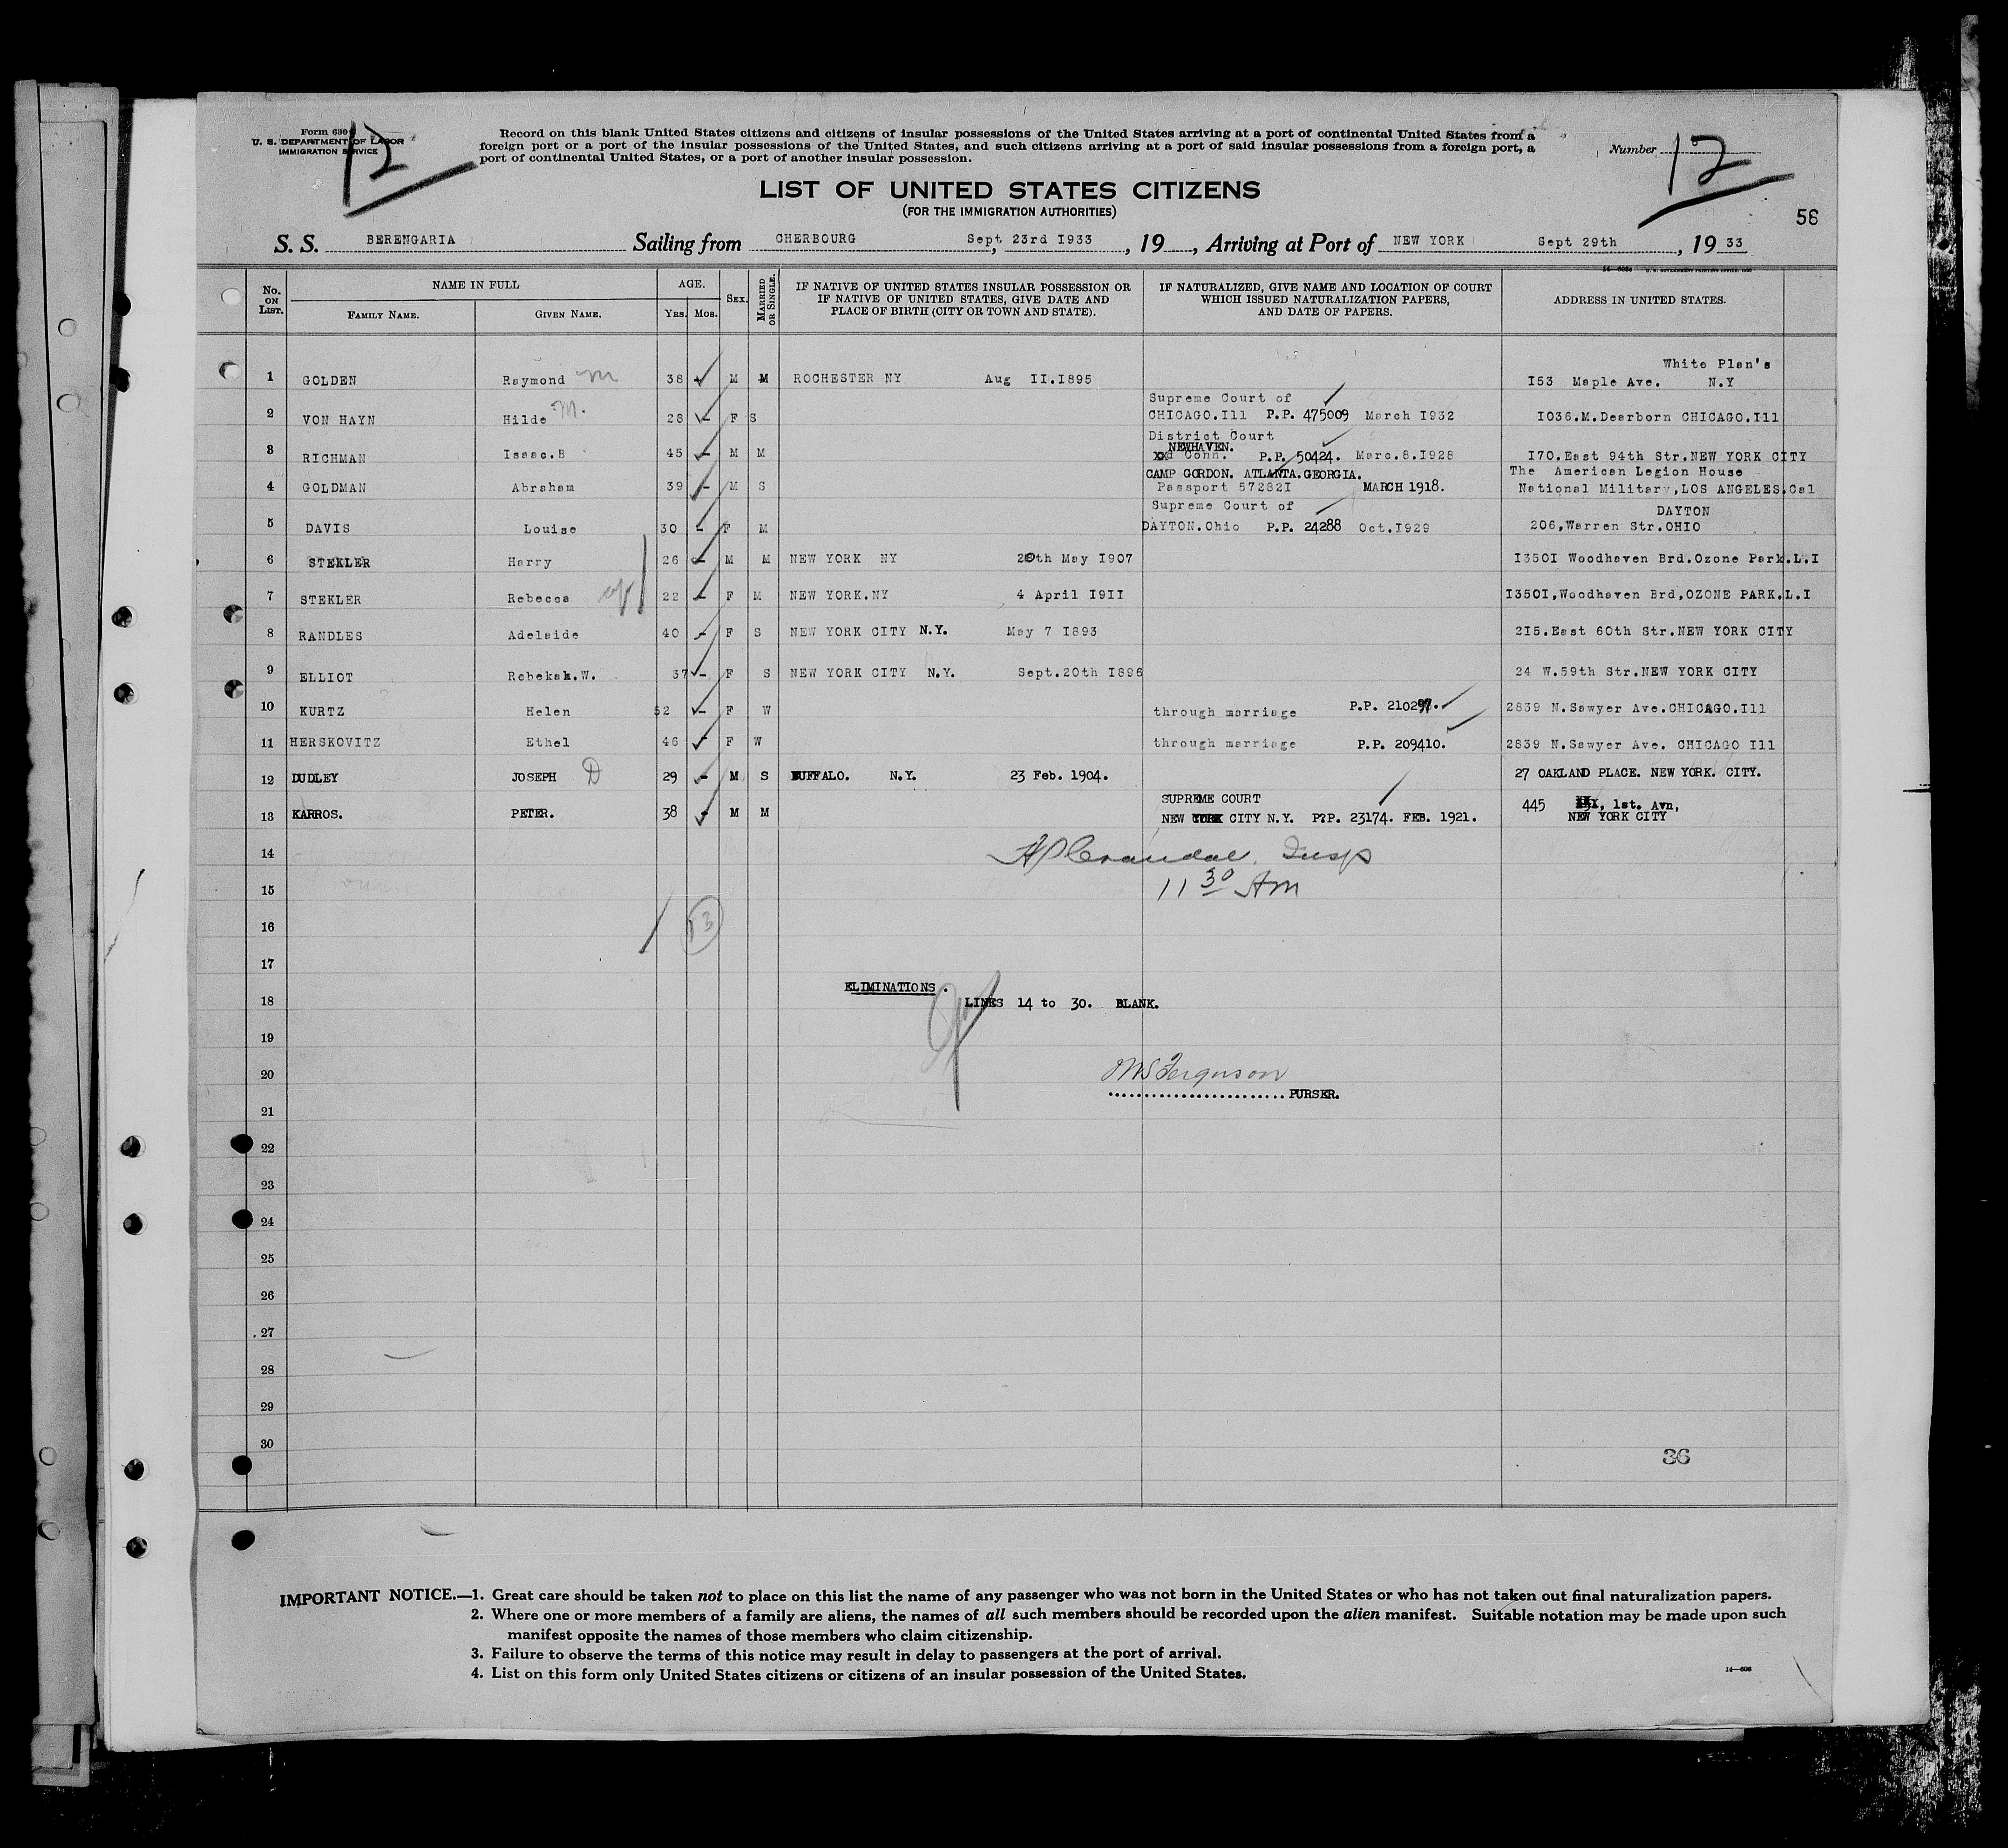 Form 630
U. S. DEPARTMENT OF LABOR
IMMIGRATION SERVICE
12
Record on this blank United States citizens and citizens of insular possessions of the United States arriving at a port of continental United States from a
foreign port or a port of the insular possessions of the United States, and such citizens arriving at a port of said insular possessions from a foreign port, a
port of continental United States, or a port of another insular possession.
Number 12
LIST OF UNITED STATES CITIZENS
(FOR THE IMMIGRATION AUTHORITIES)
56
S. S. BERENGARIA Sailing from CHERBOURG Sept 23rd I933, 19 , Arriving at Port of NEW YORK Sept 29th , 19 33
No. ON LIST. NAME IN FULL AGE. SEX. MARRIED OR SINGLE. IF NATIVE OF UNITED STATES INSULAR POSSESSION OR IF NATIVE OF UNITED STATES, GIVE DATE AND PLACE OF BIRTH (CITY OR TOWN AND STATE). IF NATURALIZED, GIVE NAME AND LOCATION OF COURT WHICH ISSUED NATURALIZATION PAPERS, AND DATE OF PAPERS. ADDRESS IN UNITED STATES.
FAMILY NAME. GIVEN NAME. YRS. MOS.
White Plan's
1 GOLDEN Raymond m 38 M M ROCHESTER NY Aug II.I895 I53 Maple Ave. N.Y
Supreme Court of
2 VON HAYN Hilde M. 28 F S CHICAGO.Ill P.P. 475009 March I932 I036.M.Dearborn CHICAGO.Ill
District Court
NEWHAVEN.
3 RICHMAN Isaac.B 45 M M Conn. P.P. 50424. Marc.8.I928 I70.East 94th Str.NEW YORK CITY
CAMP GORDON. ATLANTA.GEORGIA. The American Legion House
4 GOLDMAN Abraham 39 M S Passport 57282I MARCH 1918. National Military,LOS ANGELES.Cal
Supreme Court of DAYTON
5 DAVIS Louise 30 F M DAYTON.Ohio P.P. 24288 Oct.I929 206,Warren Str.OHIO
6 STEKLER Harry 26 M M NEW YORK NY 20th May I907 I350I Woodhaven Brd.Ozone Park.L.I
7 STEKLER Rebecca 22 F M NEW YORK.NY 4 April I9II I350I,Woodhaven Brd,OZONE PARK.L.I
8 RANDLES Adelaide 40 F S NEW YORK CITY N.Y. May 7 I893 2I5.East 60th Str.NEW YORK CITY
9 ELLIOT Rebekah.W. 37 F S NEW YORK CITY N.Y. Sept.20th I896 24 W.59th Str.NEW YORK CITY
10 KURTZ Helen 52 F W through marriage P.P. 210297. 2839 N.Sawyer Ave.CHICAGO.Ill
11 HERSKOVITZ Ethel 46 F W through marriage P.P. 209410. 2839 N.Sawyer Ave. CHICAGO Ill
12 DUDLEY JOSEPH D 29 M S BUFFALO. N.Y. 23 Feb. 1904. 27 OAKLAND PLACE. NEW YORK. CITY.
SUPREME COURT 445 1st. Avn,
13 KARROS. PETER. 38 M M NEW YORK CITY N.Y. P?P. 23174. FEB. 1921. NEW YORK CITY
14 Insp
15 11 30 Am
16 13
17
ELIMINATIONS.
18 LINES 14 to 30. BLANK.
19
20 Ferguson
PURSER.
21
22
23
24
25
26
27
28
29
30
36
IMPORTANT NOTICE.—1. Great care should be taken not to place on this list the name of any passenger who was not born in the United States or who has not taken out final naturalization papers.
2. Where one or more members of a family are aliens, the names of all such members should be recorded upon the alien manifest. Suitable notation may be made upon such
manifest opposite the names of those members who claim citizenship.
3. Failure to observe the terms of this notice may result in delay to passengers at the port of arrival.
4. List on this form only United States citizens or citizens of an insular possession of the United States.